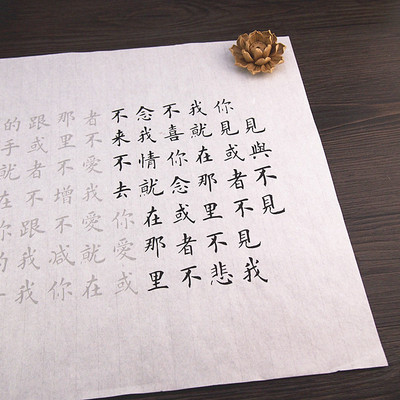 見與不見
你見或者不見我
我就在那里不悲
不喜你念或者不
念我情就在那里
不来不去你愛或
者不愛我愛就在
那里不增不减你
跟或者不跟我我
的手就在你的